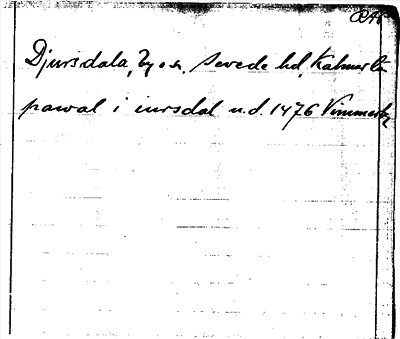 RAÄ
Djursdala, by o sn, Sevede hd, Kalmar län
pawal i iursdal u.d. 1476 Vimmerby